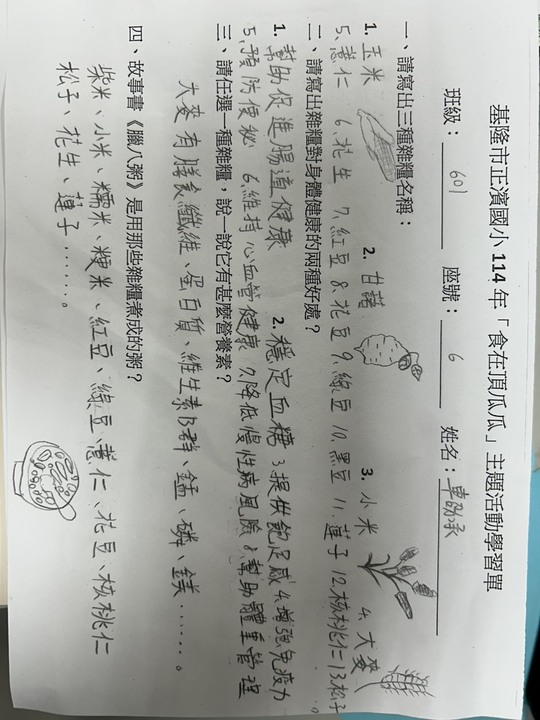 基隆市正濱國小 114 年「食在頂瓜瓜」主題活動學習單
班級：601 座號：6 姓名：卓
一、請寫出三種雜糧名稱：
1. 玉米 2. 甘藷 3. 小米 4. 大麥
5、薏仁 6、花生 7、紅豆 8、花豆 9、綠豆 10、黑豆 11、蓮子 12、核桃仁 13、松子
二、請寫出雜糧對身體健康的兩種好處？
1. 幫助促進腸道健康 2. 穩定血糖 3、提供飽足感 4、增強免疫力
5、預防便秘 6、維持心血管健康 7、降低慢性病風險 8、幫助體重管理
三、請任選一種雜糧，說一說它有甚麼營養素？
大麥有膳食纖維、蛋白質、維生素B群、錳、磷、鎂……。
四、故事書《臘八粥》是用那些雜糧煮成的粥？
柴米、小米、糯米、粳米、紅豆、綠豆、薏仁、花豆、核桃仁
松子、花生、蓮子……。